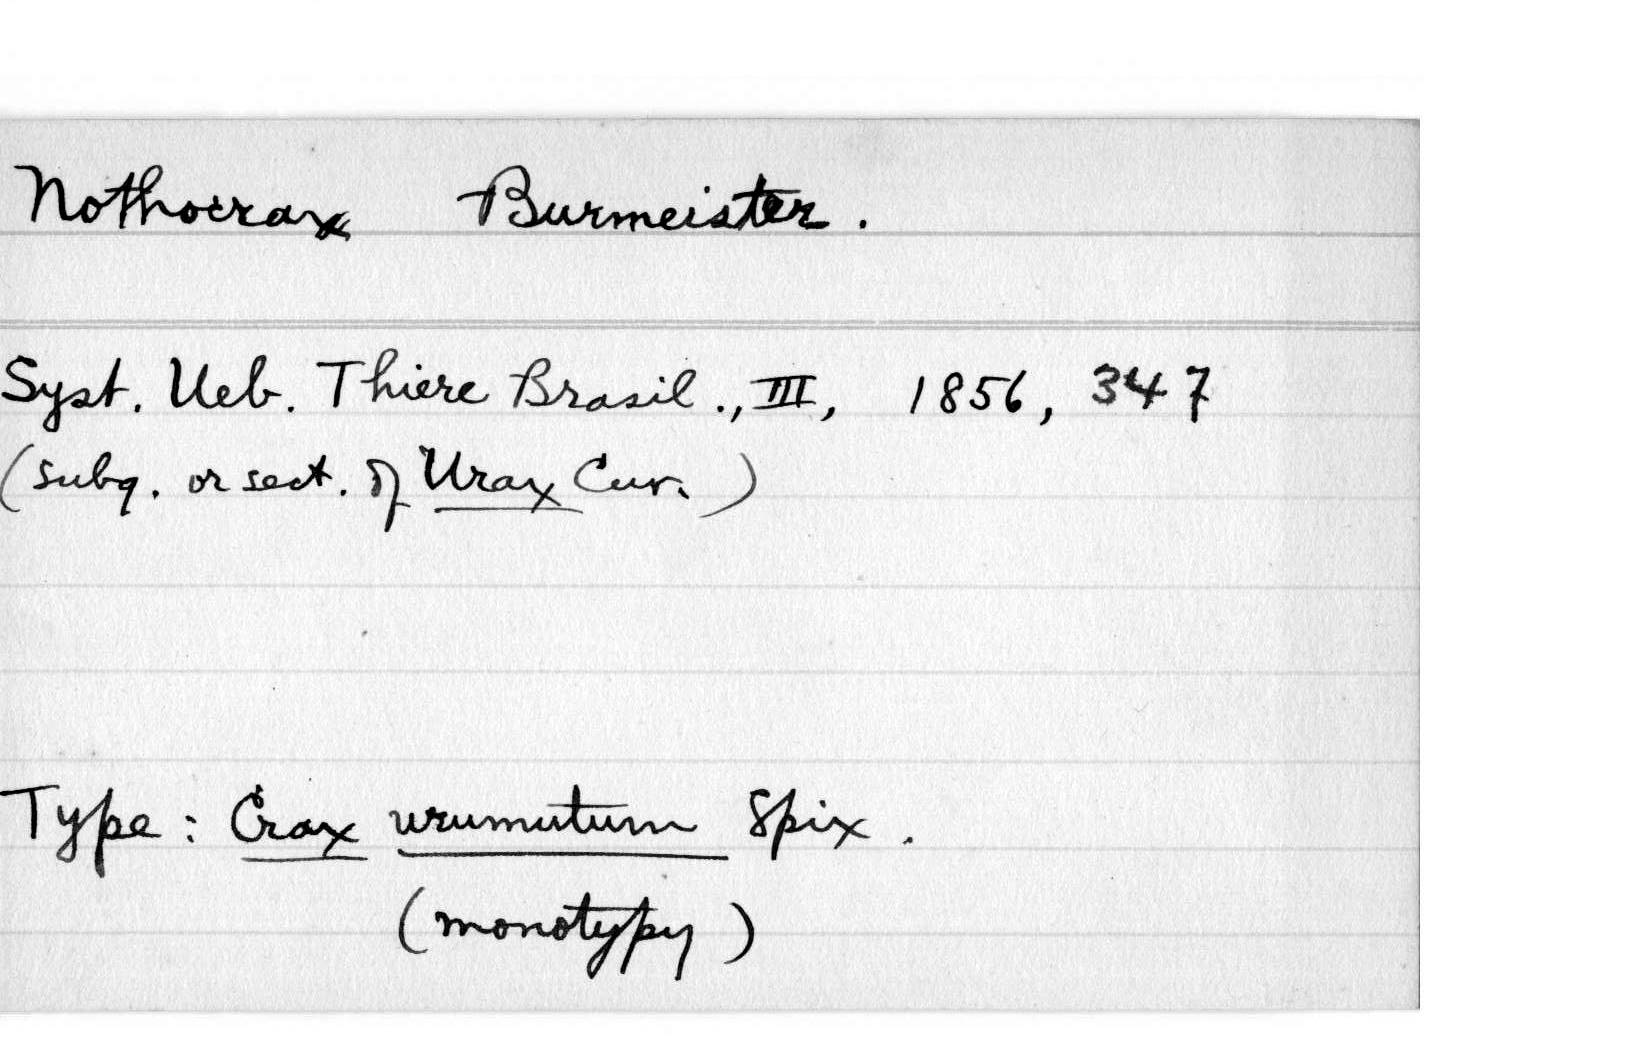 Nothocrax Burmeister.
Syst. Ueb. Thiere Brasil., III, 1856, 347
(subg. or sect. of Urax Cuv.)
Type: Crax urumutum Spix.
(monotypy)